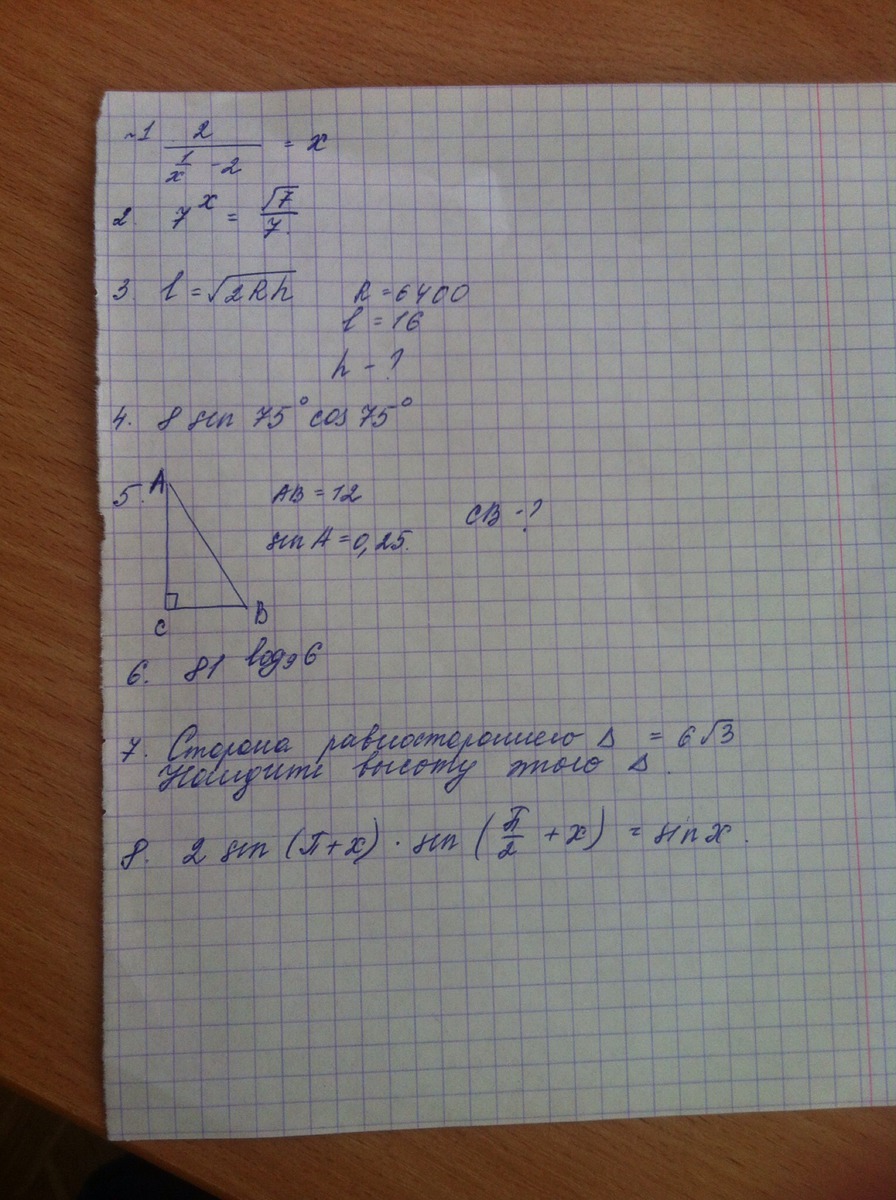 ~1 2/(1/x - 2) = x
2. 7^x = √7/7.
3. l = √2Rh R = 6400
l = 16
h - ?
4. 8 sin 75° cos 75°
5. A AB = 12 CB - ?
sin A = 0,25.
C B
6. 81 log₉6
7. Сторона равностороннего Δ = 6√3
Найдите высоту этого Δ.
8. 2 sin (π+x) · sin (π/2 + x) = sin x.